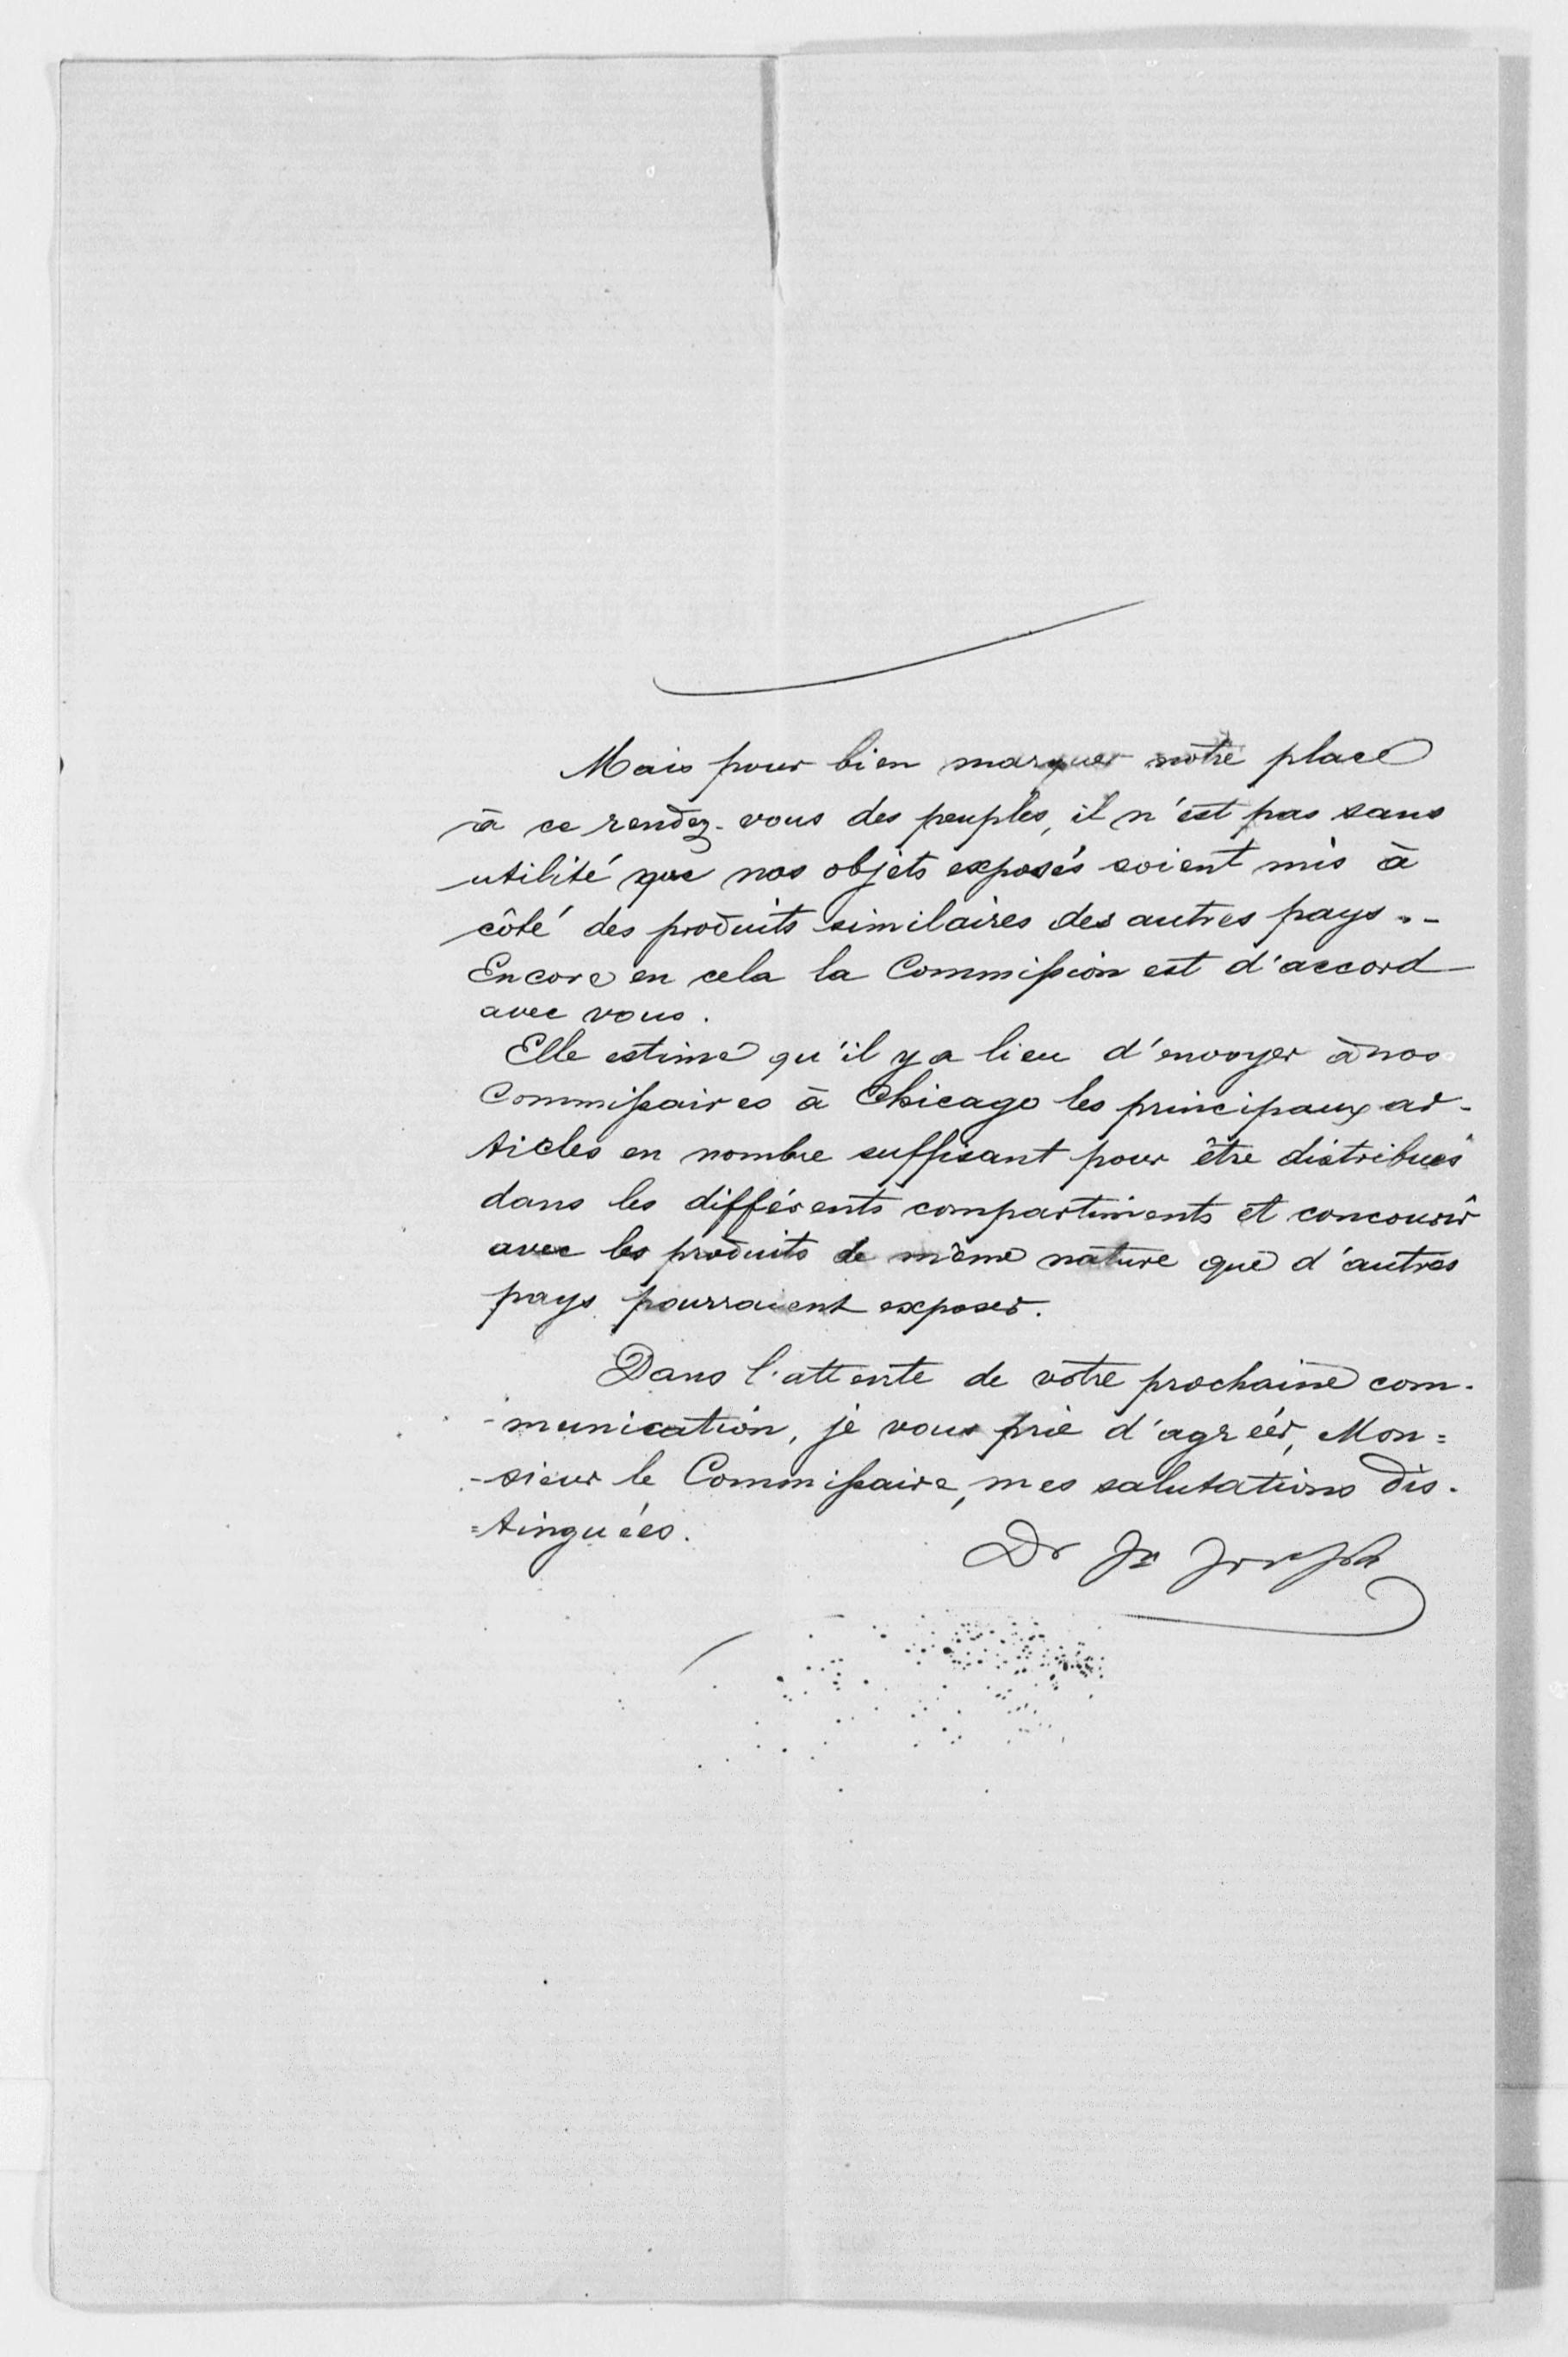 Mais pour bien marquer notre place
à ce rendez-vous des peuples, il n'est pas sans
utilité que nos objets exposés soient mis à
côté des produits similaires des autres pays. -
Encore en cela la Commission est d'accord
avec vous.
Elle estime qu'il y a lieu d'envoyer à nos
Commissaires à Chicago les principaux ar-
ticles en nombre suffisant pour être distribués
dans les différents compartiments et concourir
avec les produits de même nature que d'autres
pays pourraient exposer.
Dans l'attente de votre prochaine com-
-munication, je vous prie d'agréer, Mon=
-sieur le Commissaire, mes salutations dis-
=tinguées.
Dr Jn Joseph